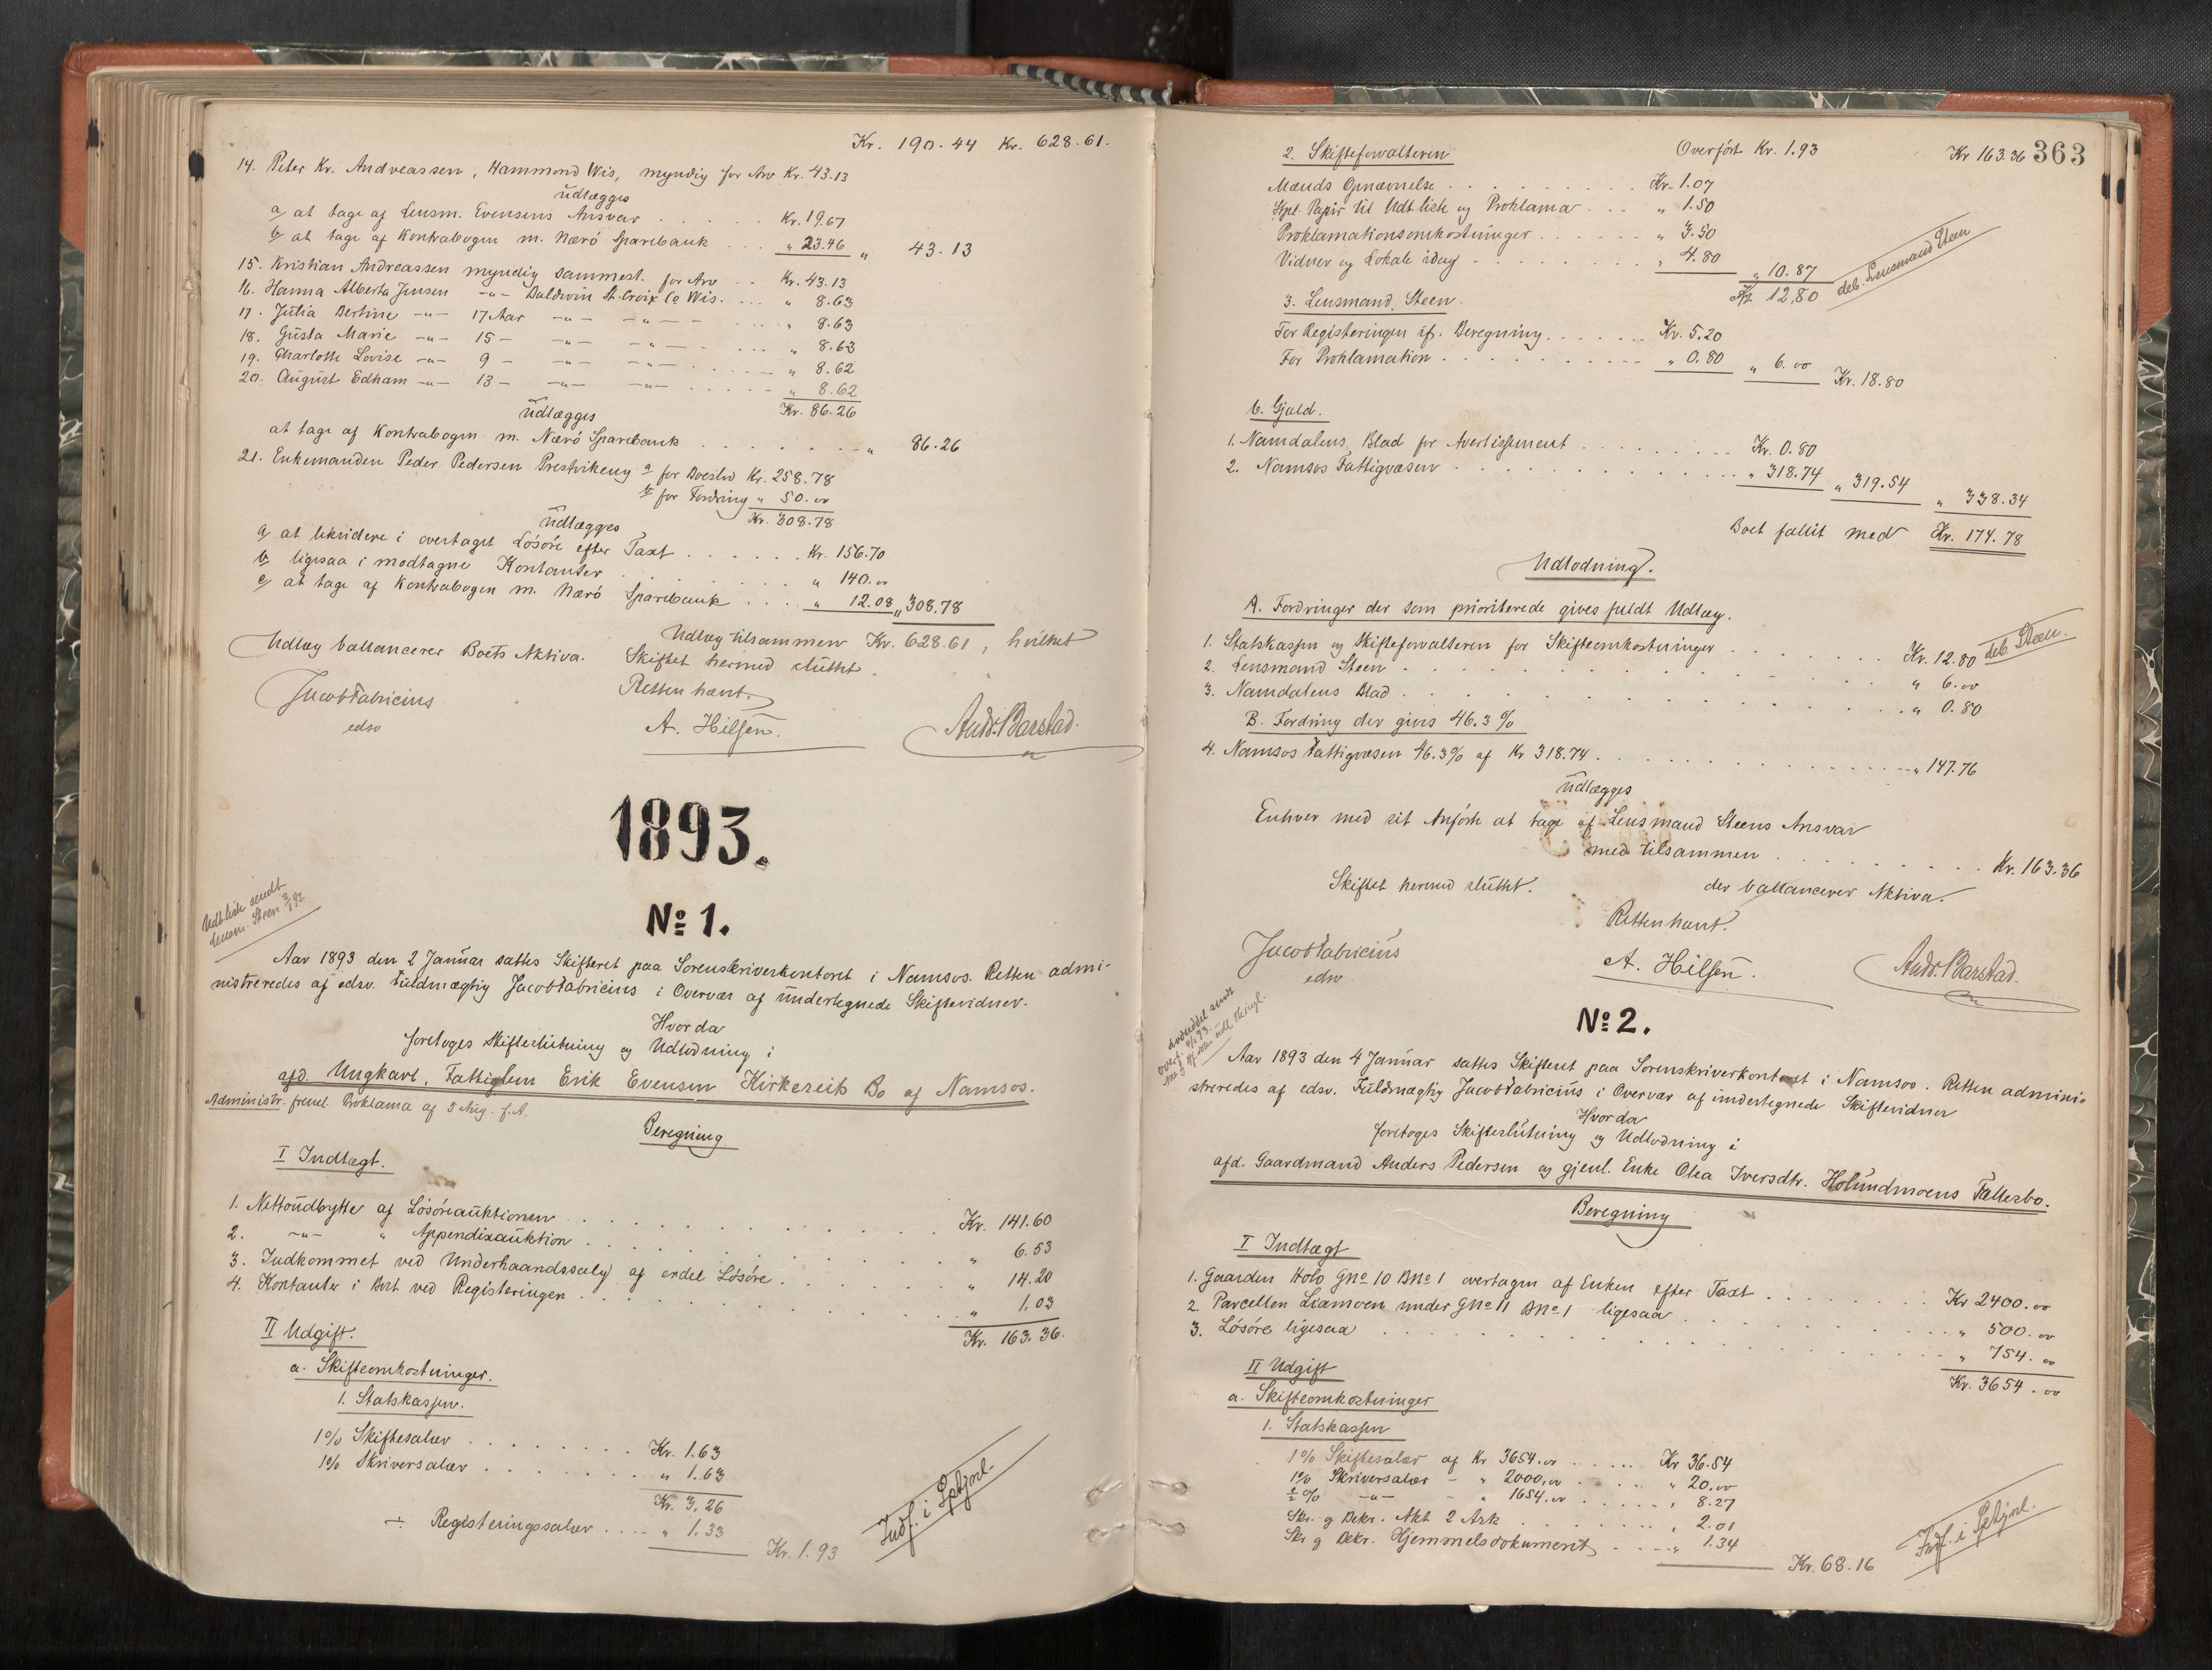 Kr. 190.44 Kr. 628.61.
14. Peter Kr. Andreassen, Hammond Wis, myndig for Arv Kr. 43.13
Udlægges
a, at tage af Lensm. Evensens Ansvar . . . . . Kr. 19.67
b, at tage af Kontrabogen m. Nærö Sparebank . . . " 23.46 " 43.13
15. Kristian Andreassen myndig sammest. for Arv . . Kr. 43.13
16. Hanna Alberta Jensen -"- Baldwin St. Croix Co Wis. . . . " 8.63
17. Julia Bertine -"- 17 Aar -"- -"- . . . . " 8.63
18. Gusta Marie -"- 15 - -"- -"- . . . . " 8.63
19. Charlotte Lovise -"- 9 - -"- -"- . . . . . " 8.62
20. August Edham -"- 13 - -"- -"- . . . . . " 8.62
Kr. 86.26
Udlægges
at tage af Kontrabogen m. Nærö Sparebank . . . . . . . . " 86.26
21. Enkemanden Peder Pedersen Prestvikeng a for Boeslod Kr. 258.78
b for Fordring " 50.00
Kr. 308.78
Udlægges
a, at likvidere i overtaget Lösöre efter Taxt . . . . . . Kr. 156.70
b, ligesaa i modtagne Kontanter . . . . . . . . " 140.00
c, at tage af Kontrabogen m. Nærö Sparebank . . . . " 12.08 " 308.78
Udlæg tilsammen Kr. 628.61, hvilket
Udlæg ballancerer Boets Aktiva. Skiftet hermed sluttet.
Retten hævt.
Jacob Fabricius
edsv
A. Hilsen.
Andr. Barstad.
1893.
Udt.liste sendt
Lensm. Steen 3/1 93.
No 1.
Aar 1893 den 2 Januar sattes Skifteret paa Sorenskriverkontoret i Namsos. Retten admi-
nistreredes af edsv. Fuldmægtig Jacob Fabricius i Overvær af undertegnede Skiftevidner.
Hvor da
foretoges Skifteslutning og Udlodning i
afd. Ungkarl, Fattiglem Erik Evensen Kirkereits Bo af Namsos.
Administr. freml. Proklama af 5 Aug. f. A.
Beregning
I Indtægt.
1. Nettoudbytte af Lösöreauktionen . . . . . . . . . . Kr. 141.60
2. -"- " Appendixauktion . . . . . . . . . . " 6.53
3. Indkommet ved Underhaandssalg af endel Lösöre . . . . . . " 14.20
4. Kontanter i Boet ved Registeringen . . . . . . . . . . " 1.03
Kr. 163.36.
II Udgift.
a. Skifteomkostninger.
1. Statskassen.
1% Skiftesalær . . . . . . . . Kr. 1.63
1% Skriversalær . . . . . . . " 1.63
Kr. 3.26
÷ Registeringssalær . . . . " 1.33
Kr. 1.93
Indf. i Sptjrnl.
363
2. Skifteforvalteren Overfört Kr. 1.93 Kr 163.36
Mænds Opnævnelse . . . . . . . . . . Kr. 1.07
Stpl. Papir til Udt.liste og Proklama . . . " 1.50
Proklamationsomkostninger . . . . . . " 3.50
Vidner og Lokale idag . . . . . . . . . " 4.80
" 10.87
Kr. 12.80
deb. Lensmand Steen
3. Lensmand Steen.
For Registeringen if. Beregning . . . . . . Kr. 5.20
For Proklamation . . . . . . . . . . . " 0.80 " 6.00 Kr. 18.80
b. Gjæld.
1. Namdalens Blad for Avertissement . . . . . . . . . Kr. 0.80
2. Namsos Fattigvæsen . . . . . . . . . . . . . " 318.74 " 319.54 " 338.34
Boet fallit med Kr. 174.78
Udlodning.
A. Fordringer der som prioriterede gives fuldt Udlæg.
1. Statskassen og Skifteforvalteren for Skifteomkostninger . . . . . . . Kr. 12.80 deb. Steen.
2. Lensmand Steen . . . . . . . . . . . . . . " 6.00
3. Namdalens Blad . . . . . . . . . . . . . . " 0.80
B. Fordring der gives 46.3 %
4. Namsos Fattigvæsen 46.3% af Kr 318.74 . . . . . . . . . . . . " 147.76
Udlægges
Enhver med sit Anförte at tage af Lensmand Steens Ansvar
med tilsammen . . . . . . . . . . Kr. 163.36
der ballancerer Aktiva.
Skiftet hermed sluttet.
Retten hævt.
Jacob Fabricius
edsv
A. Hilsen.
Andr. Barstad.
No 2.
Aar 1893 den 4 Januar sattes Skifteret paa Sorenskriverkontoret i Namsos. Retten admini-
streredes af edsv. Fuldmægtig Jacob Fabricius i Overvær af undertegnede Skiftevidner
Hvor da
foretoges Skifteslutning og Udlodning i
afd. Gaardmand Anders Pedersen og gjenl. Enke Olea Iversdtr. Holundmoens Fællesbo.
Beregning
I Indtægt
1. Gaarden Holo Gno 10 Bno 1 overtagen af Enken efter Taxt . . . . . . . . Kr 2400.00
2. Parcellen Liamoen under Gno 11 Bno 1 ligesaa . . . . . . . . . . " 500.00
3. Lösöre ligesaa . . . . . . . . . . . . . . . . " 754.00
Kr. 3654.00
II Udgift
a. Skifteomkostninger
1. Statskassen
1% Skiftesalær af Kr 3654.00 . . . . . Kr 36.54
1% Skriversalær - " 2000,00 . . . . . " 20.00
½% -"- - " 1654.00 . . . . . " 8.27
Skr. g Dekr. Akt 2 Ark . . . . . . . . . " 2.01
Skr g Dekr. Hjemmelsdokument . . . . " 1.34
Kr. 68.16
Indf. i Sptjrnl.